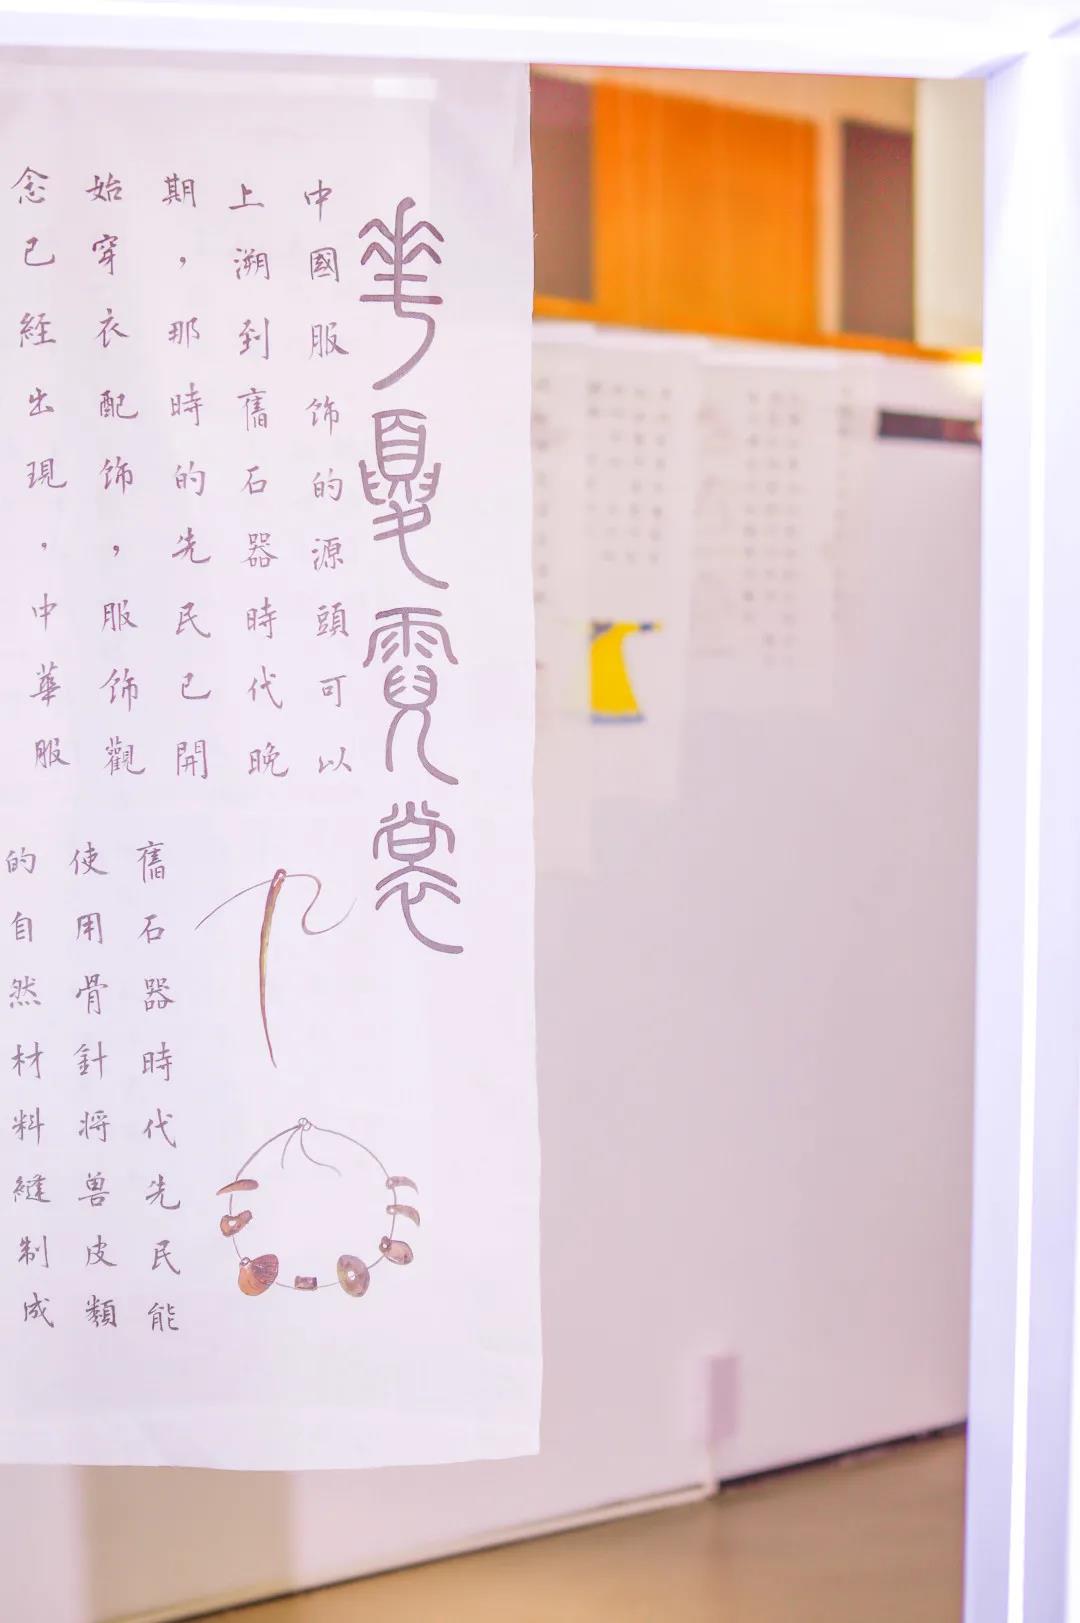 華夏霓裳
中國服饰的源頭可以
上溯到舊石器時代晚
期，那時的先民已開
始穿衣配饰，服饰觀
念已経出現，中華服
舊石器時代先民能
使用骨針将兽皮類
的自然材料縫制成